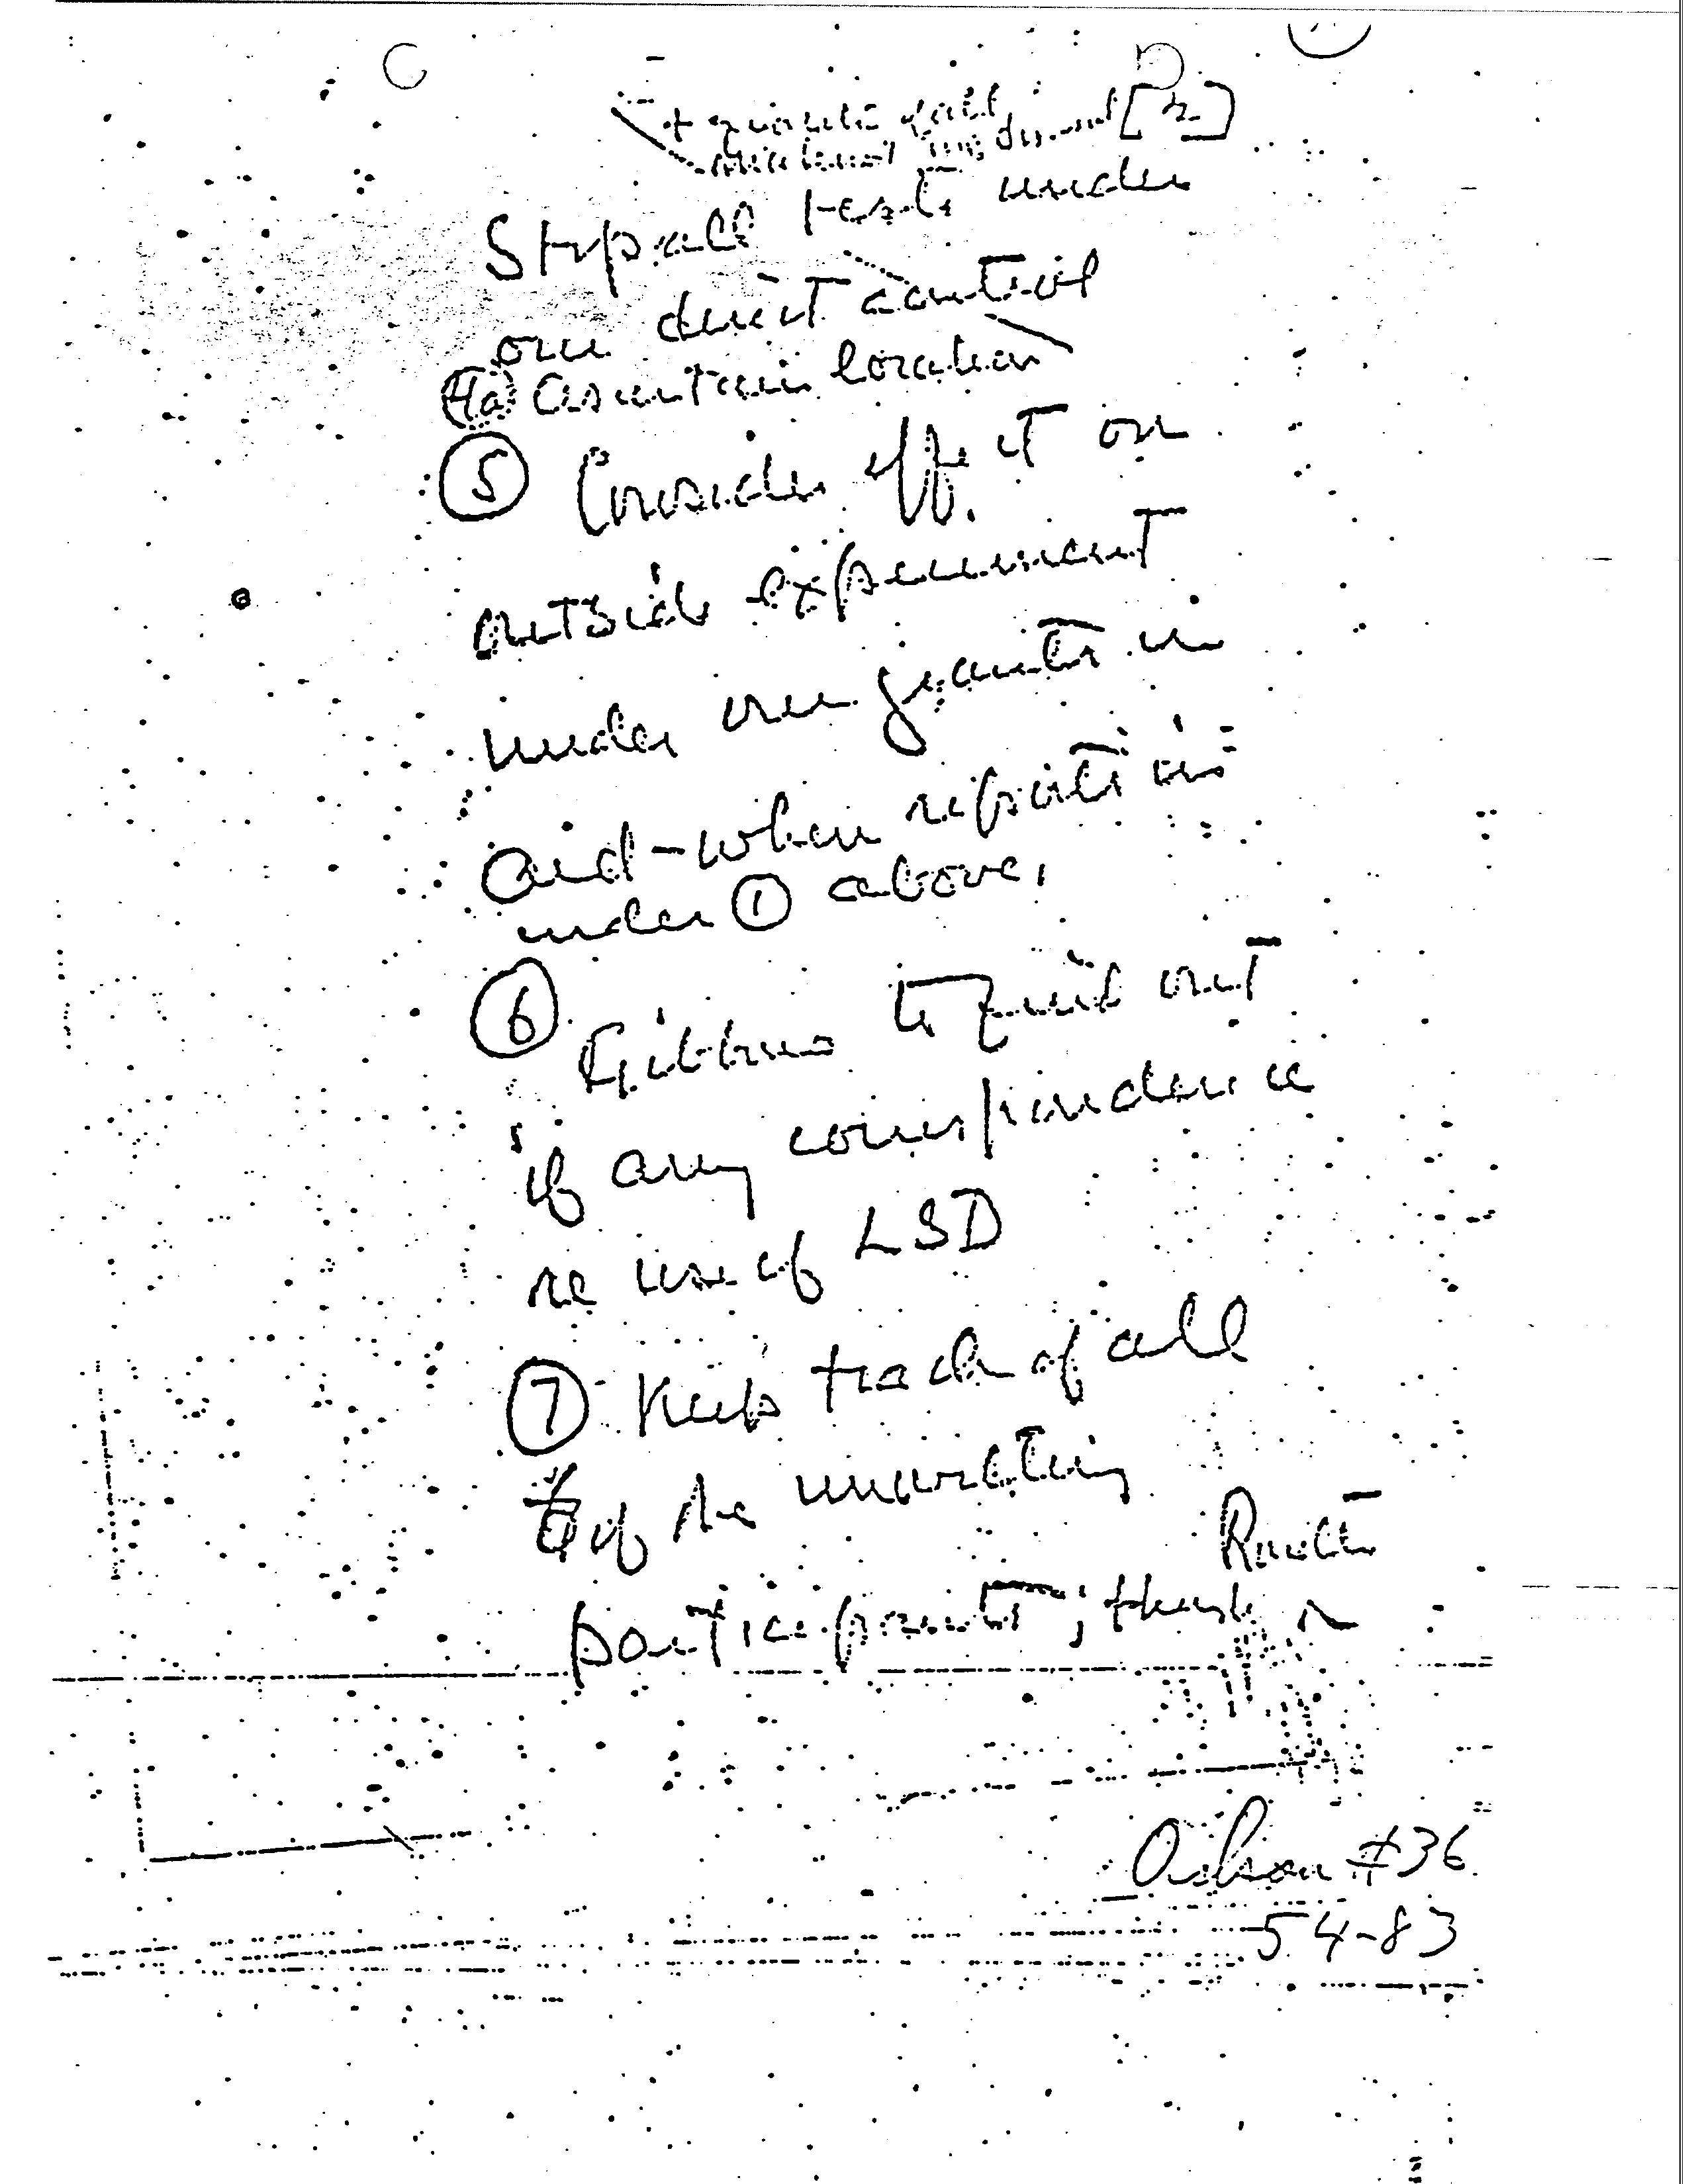 [2]
Stop all tests under
our direct control
(4a) Ascertain location
⑤ Consider effect on
outside experiment
under our grants in
aid - when reports in
under ① above.
⑥ Gibbons to find out
if any correspondence
re use of LSD
⑦ Keep track of all
of the unwitting
participants;
#36
54-83